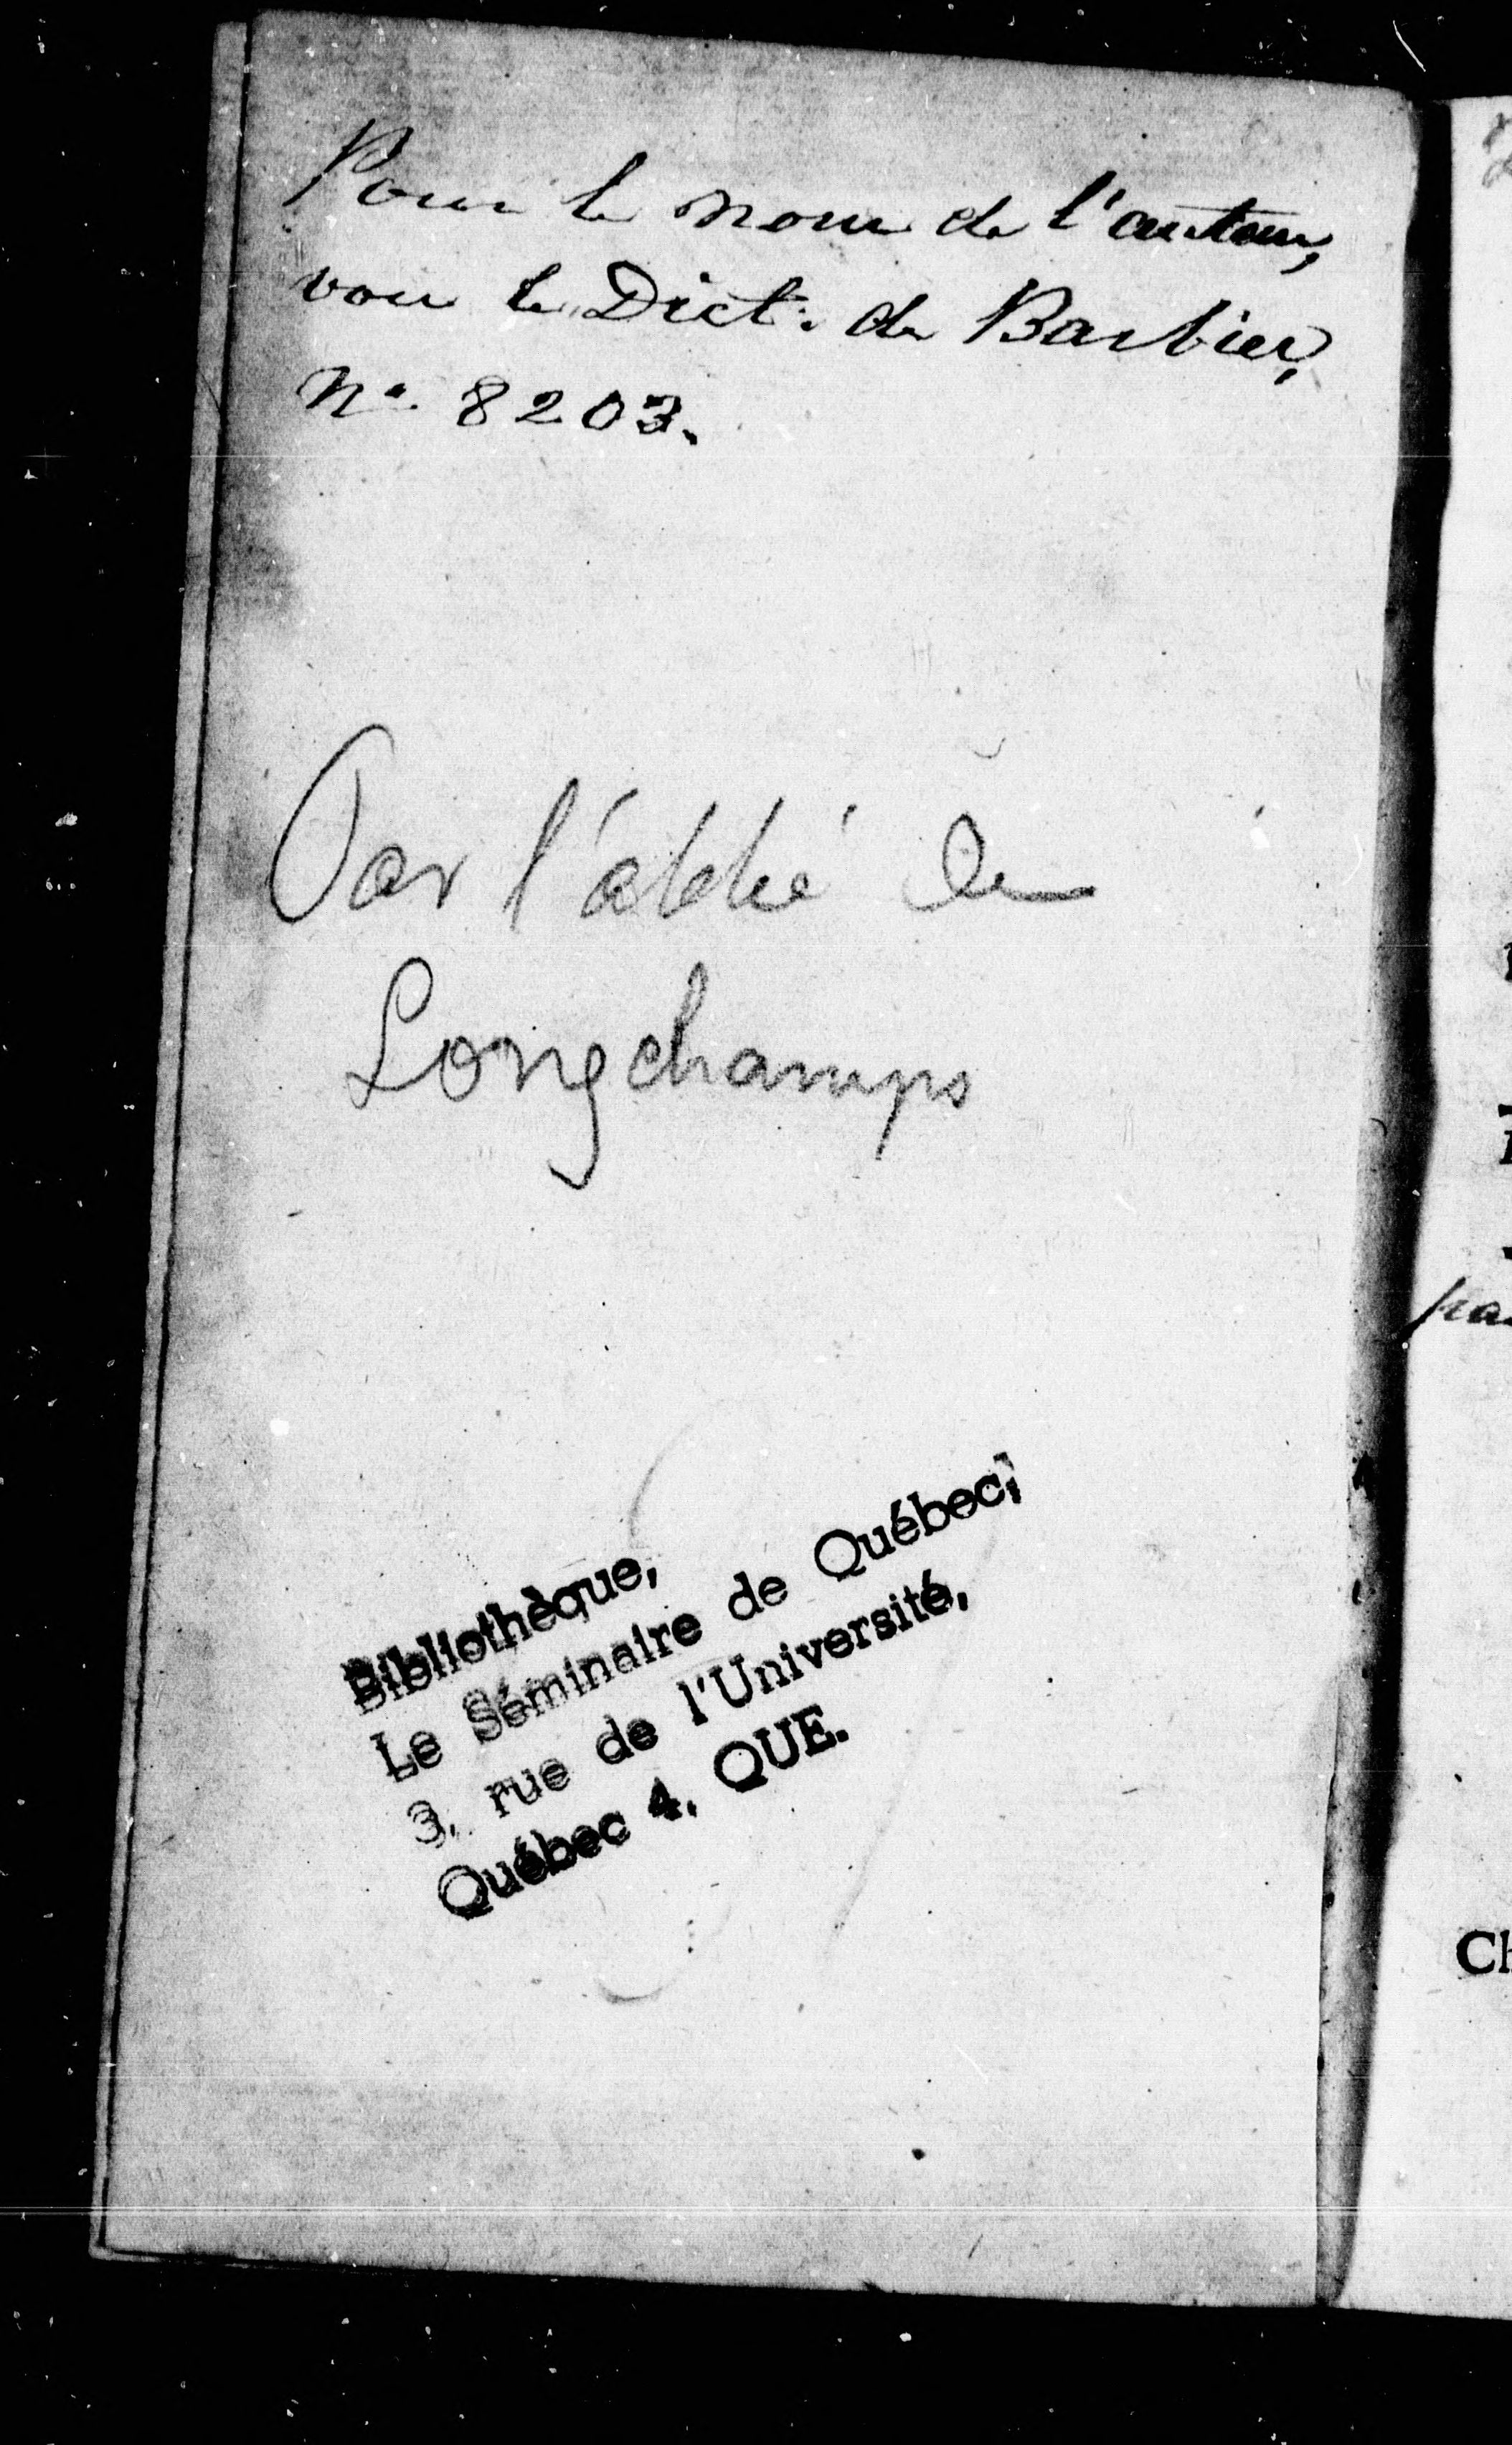 Pour le nom de l'auteur,
voir le Dict. de Barbier,
No. 8203.
Par l'abbé de
Longchamps
Bibliothèque,
Le Séminaire de Québec,
3, rue de l'Université,
Québec 4, QUE.